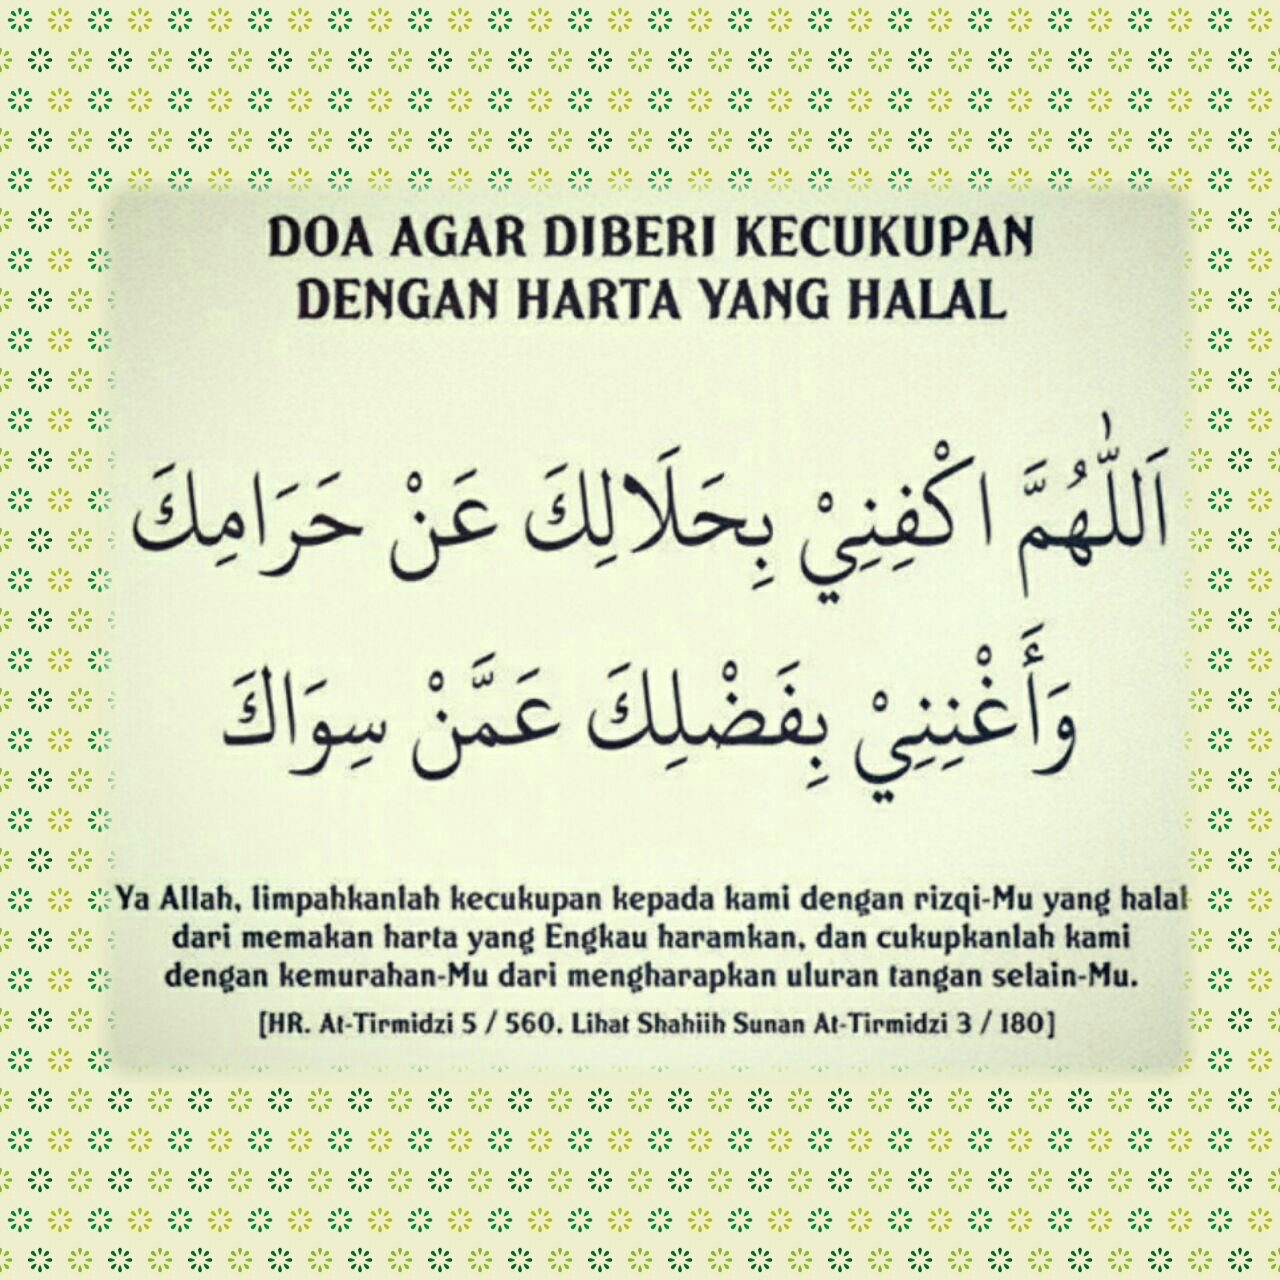 DOA AGAR DIBERI KECUKUPAN
DENGAN HARTA YANG HALAL
اَللّٰهُمَّ اكْفِنِيْ بِحَلَالِكَ عَنْ حَرَامِكَ
وَأَغْنِنِيْ بِفَضْلِكَ عَمَّنْ سِوَاكَ
Ya Allah, limpahkanlah kecukupan kepada kami dengan rizqi-Mu yang halal
dari memakan harta yang Engkau haramkan, dan cukupkanlah kami
dengan kemurahan-Mu dari mengharapkan uluran tangan selain-Mu.
[HR. At-Tirmidzi 5 / 560. Lihat Shahiih Sunan At-Tirmidzi 3 / 180]